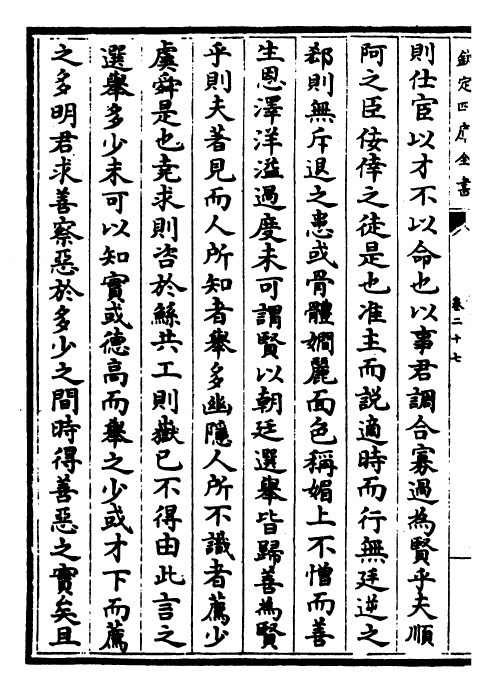 欽定四庫全書
卷二十七
則仕宦以才不以命也以事君調合寡過為賢乎夫順
阿之臣佞倖之徒是也准主而說適時而行無廷逆之
郄則無斥退之患或骨體嫺麗面色稱媚上不憎而善
生恩澤洋溢過度未可謂賢以朝廷選舉皆歸善為賢
乎則夫著見而人所知者舉多幽隱人所不識者薦少
虞舜是也堯求則咨於鯀共工則嶽已不得由此言之
選舉多少未可以知實或德高而舉之少或才下而薦
之多明君求善察惡於多少之間時得善惡之實矣且